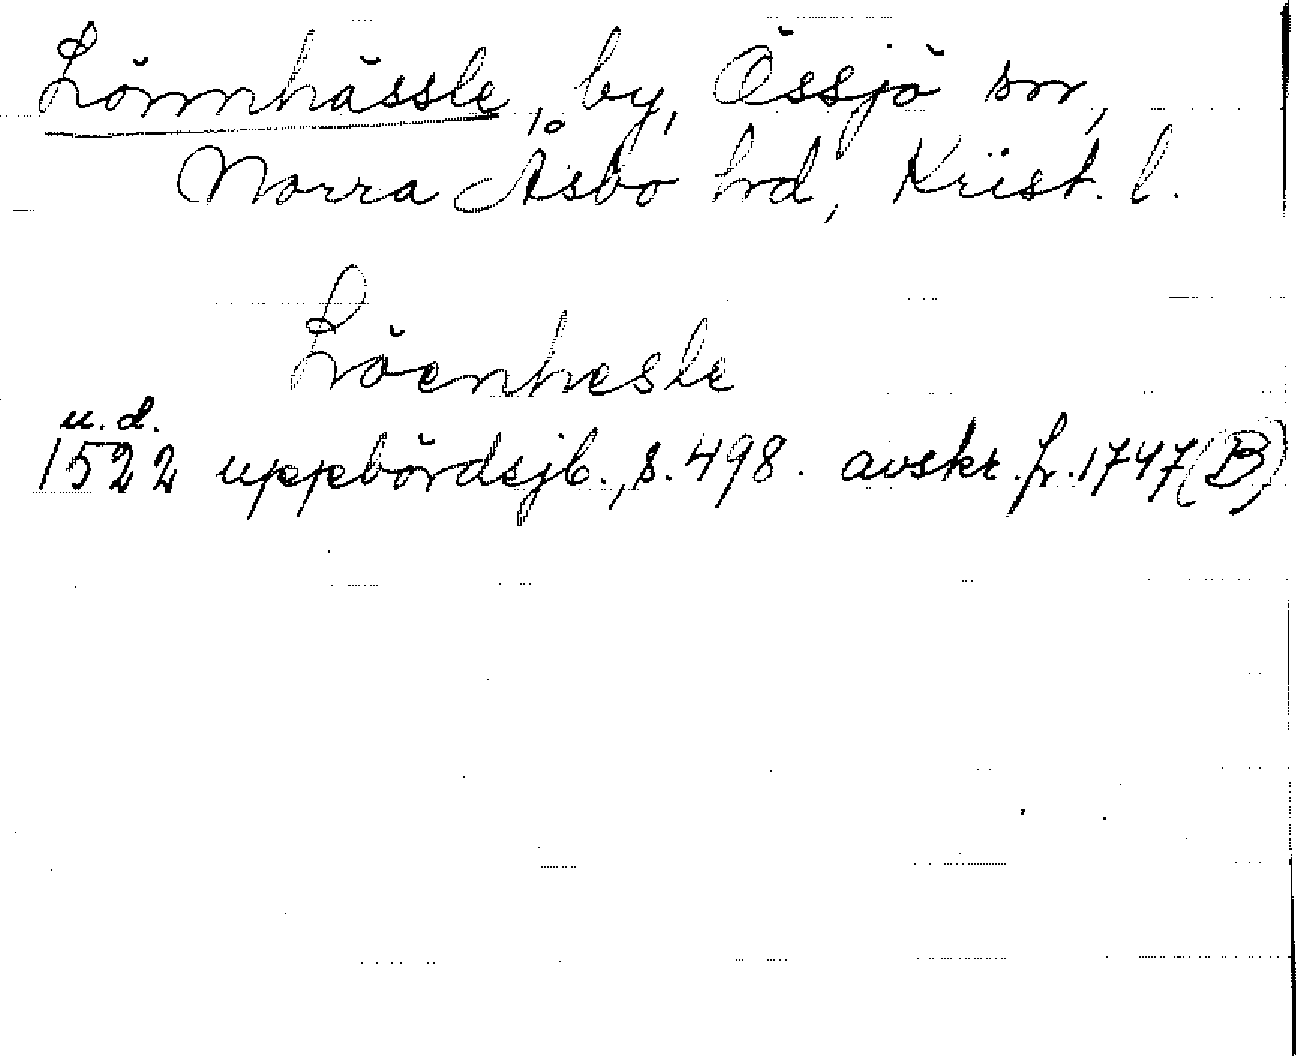 Lönnhässle, by, Össjö sn,
Norra Åsbo hrd, Krist. l.
Löenhesle
u. d.
1522 uppbördsjb., s. 498. avskr. fr. 1747 (B)